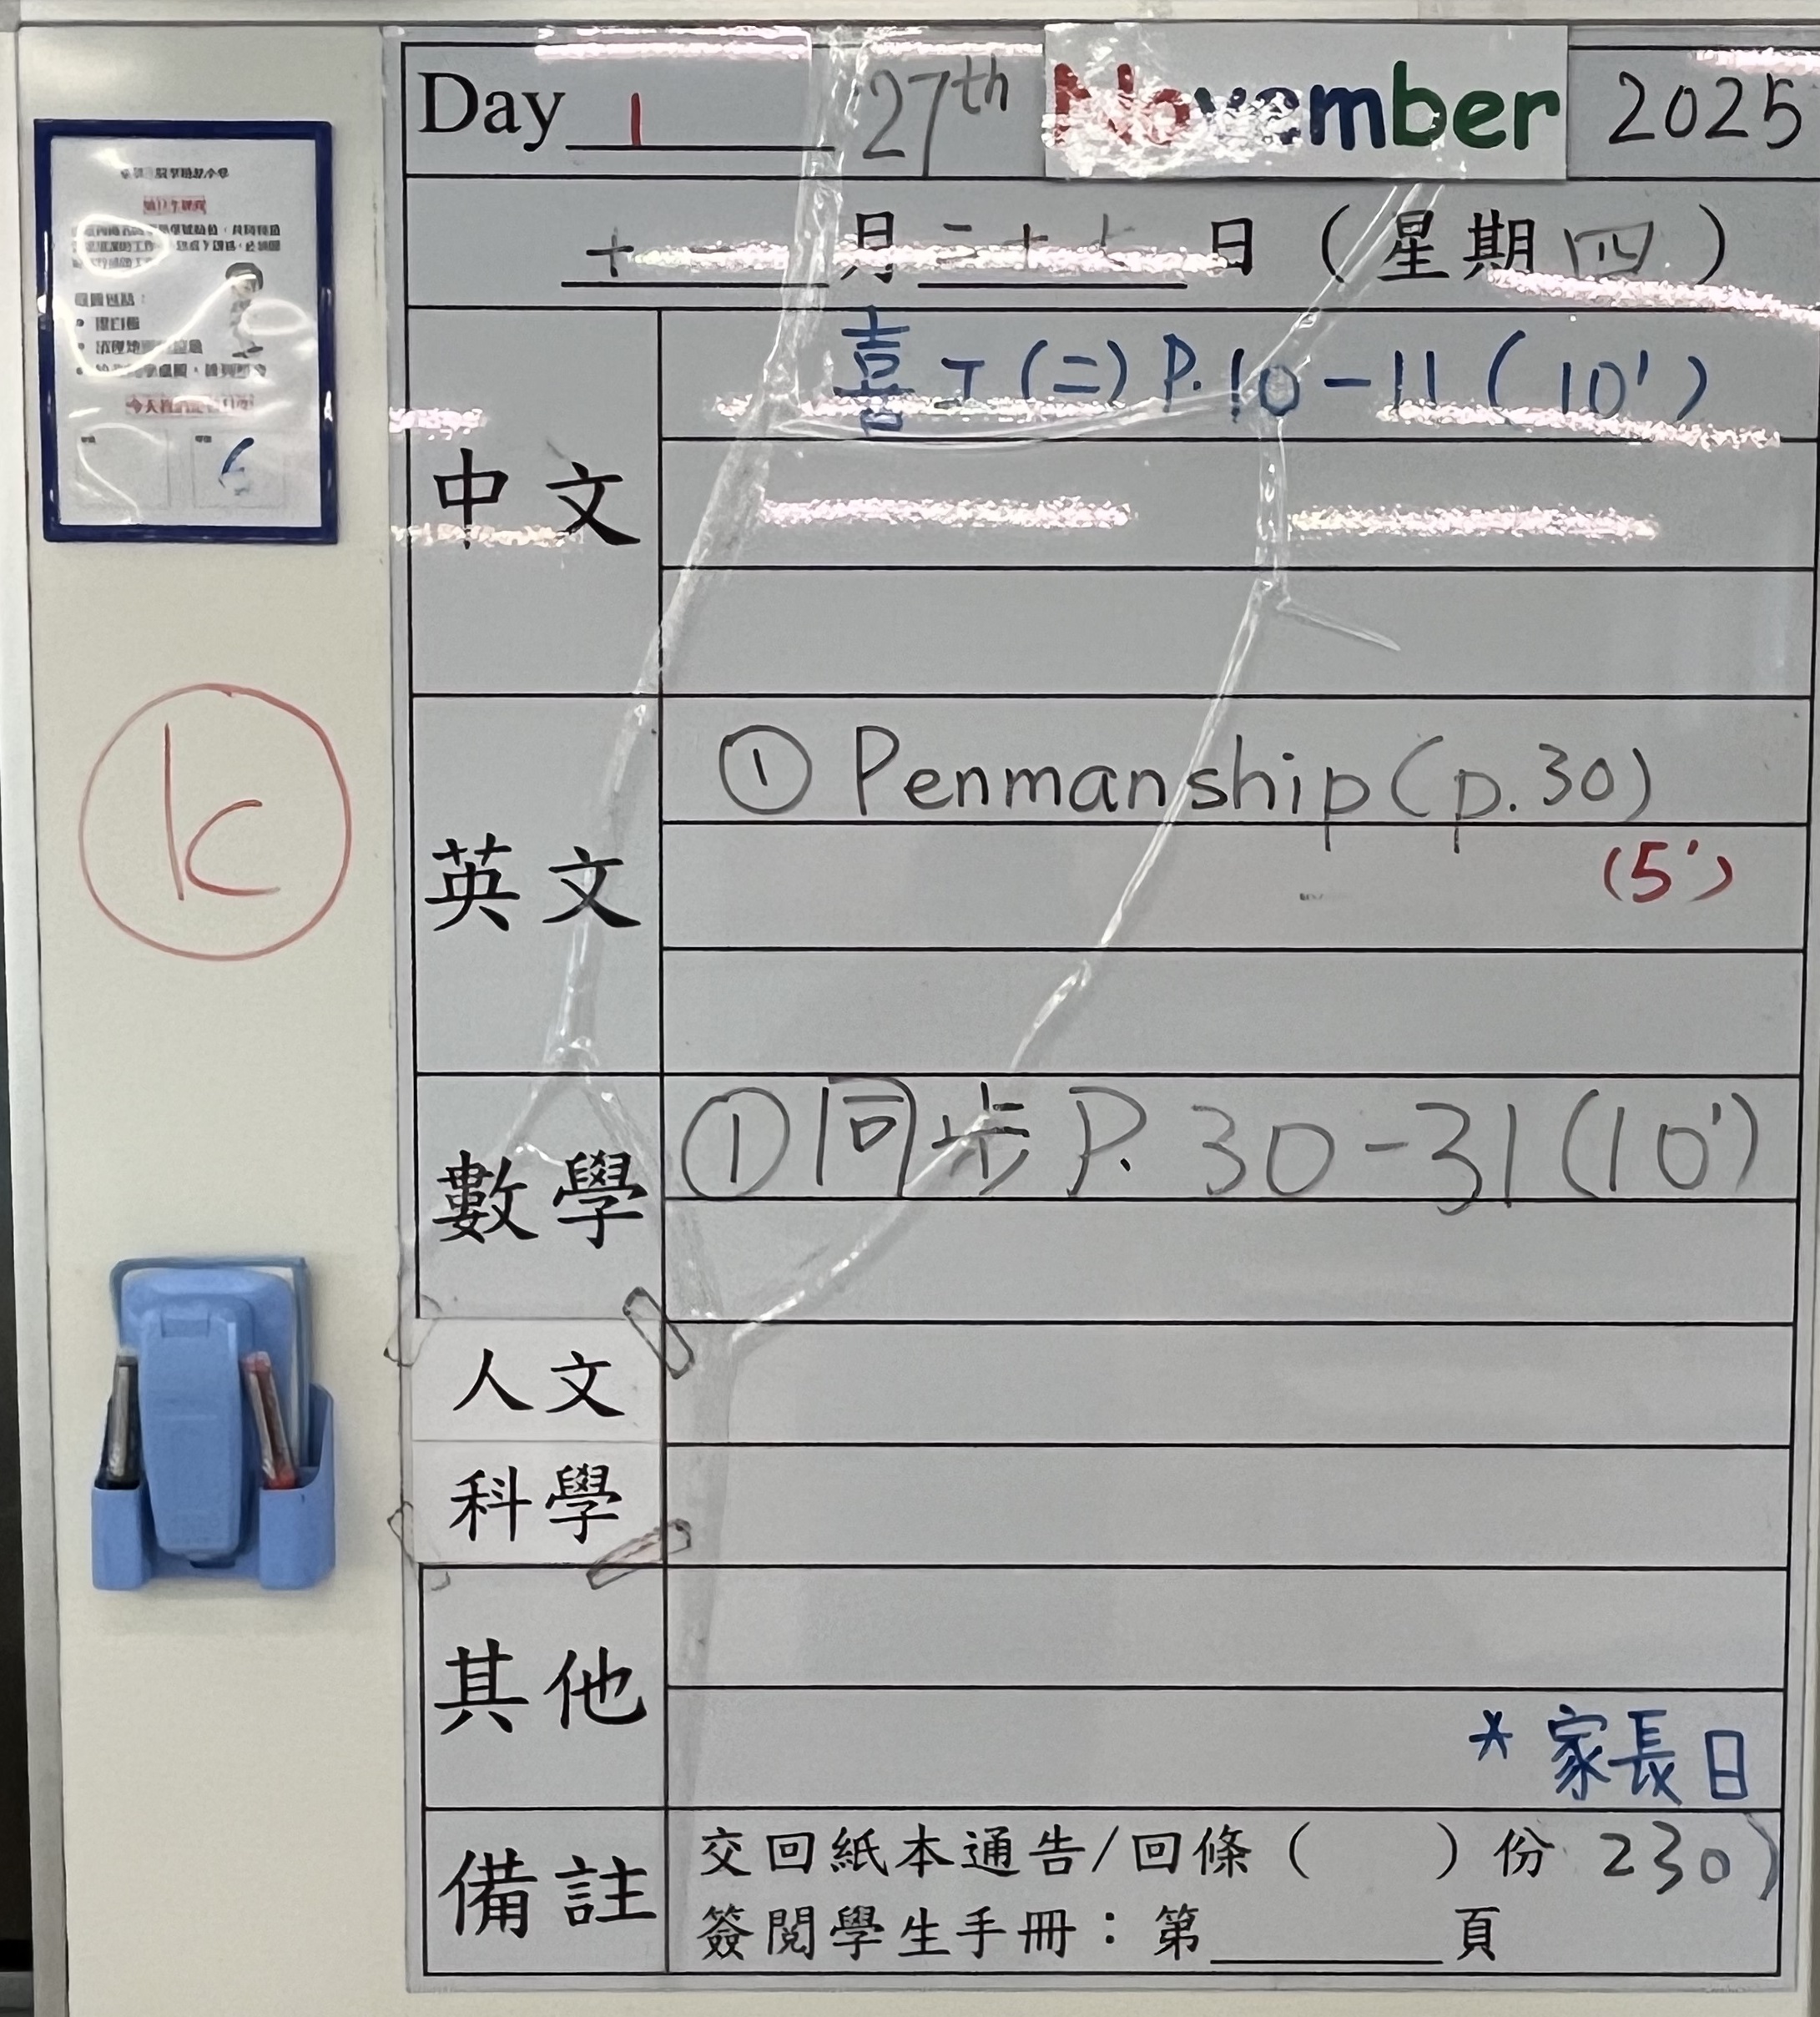 Day 1 27th November 2025
十一月二十七日（星期四）
中文
喜工(二) P.10-11 (10')
英文
① Penmanship (p.30)
(5')
數學
①同步 P. 30-31 (10')
人文
科學
其他
* 家長日
備註
交回紙本通告/回條（ ）份 230)
簽閱學生手冊：第 頁
k
今天
6